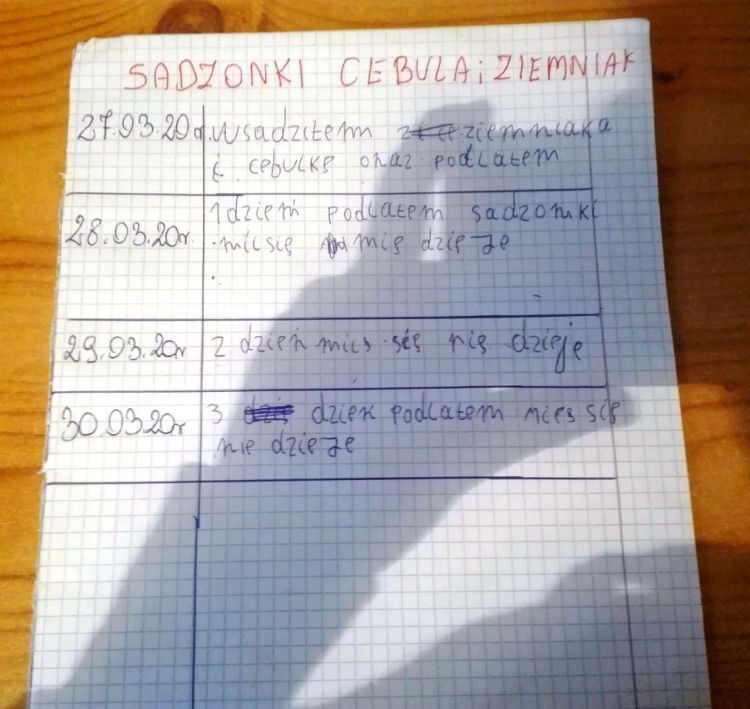 SADZONKI CEBULA i ZIEMNIAK
27.03.20r. wsadziłem ziemniaka
i cebulkę oraz podlałem
28.03.20r. 1 dzień podlałem sadzonki
nic się nie dzieje
29.03.20r 2 dzień nics się nie dzieje
30.03.20r 3 dzień podlałem nics się
nie dzieje